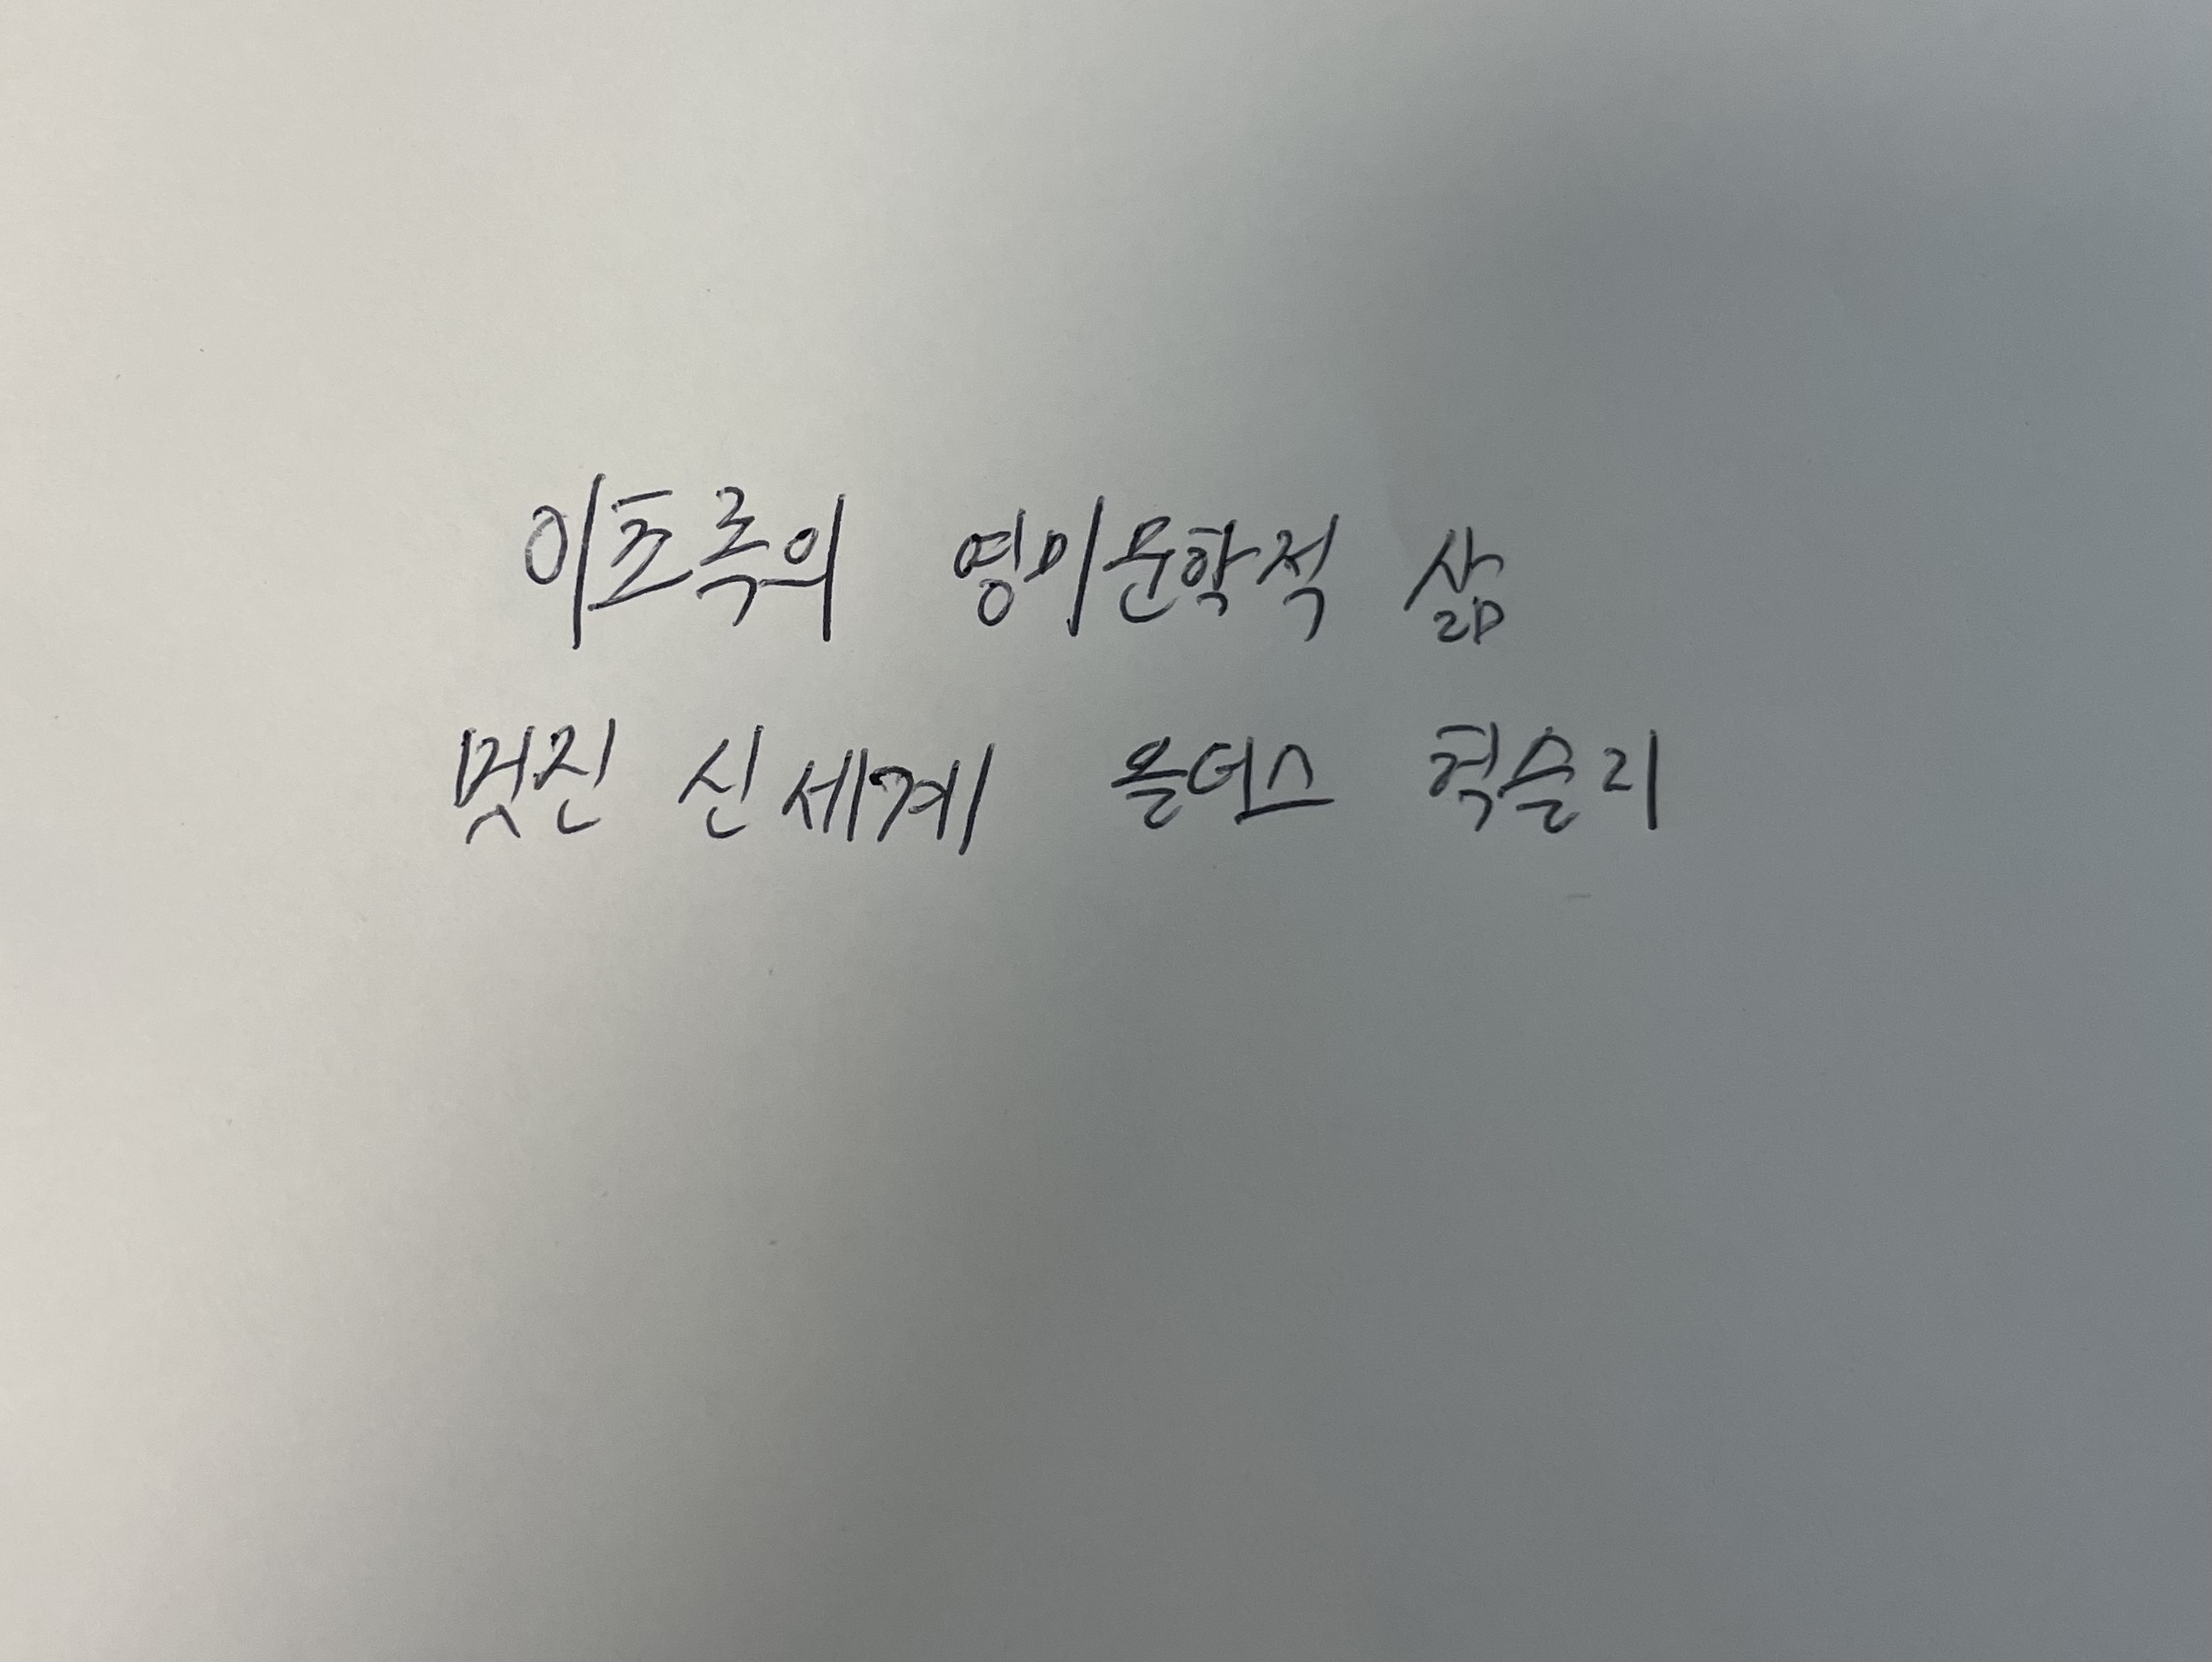 이초록의 영미문학적 삶
멋진 신세계 올더스 헉슬리